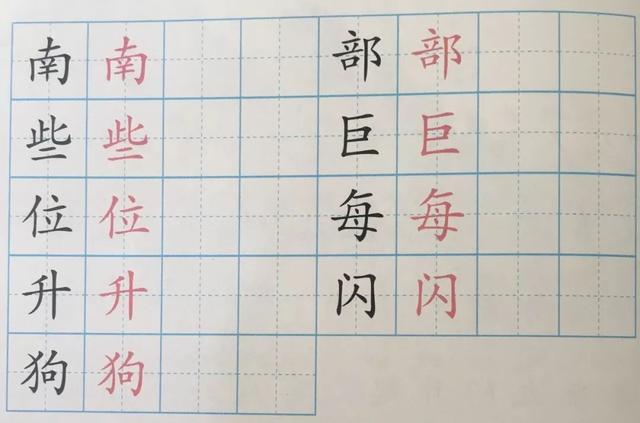 南 南 部 部
些 些 巨 巨
位 位 每 每
升 升 闪 闪
狗 狗